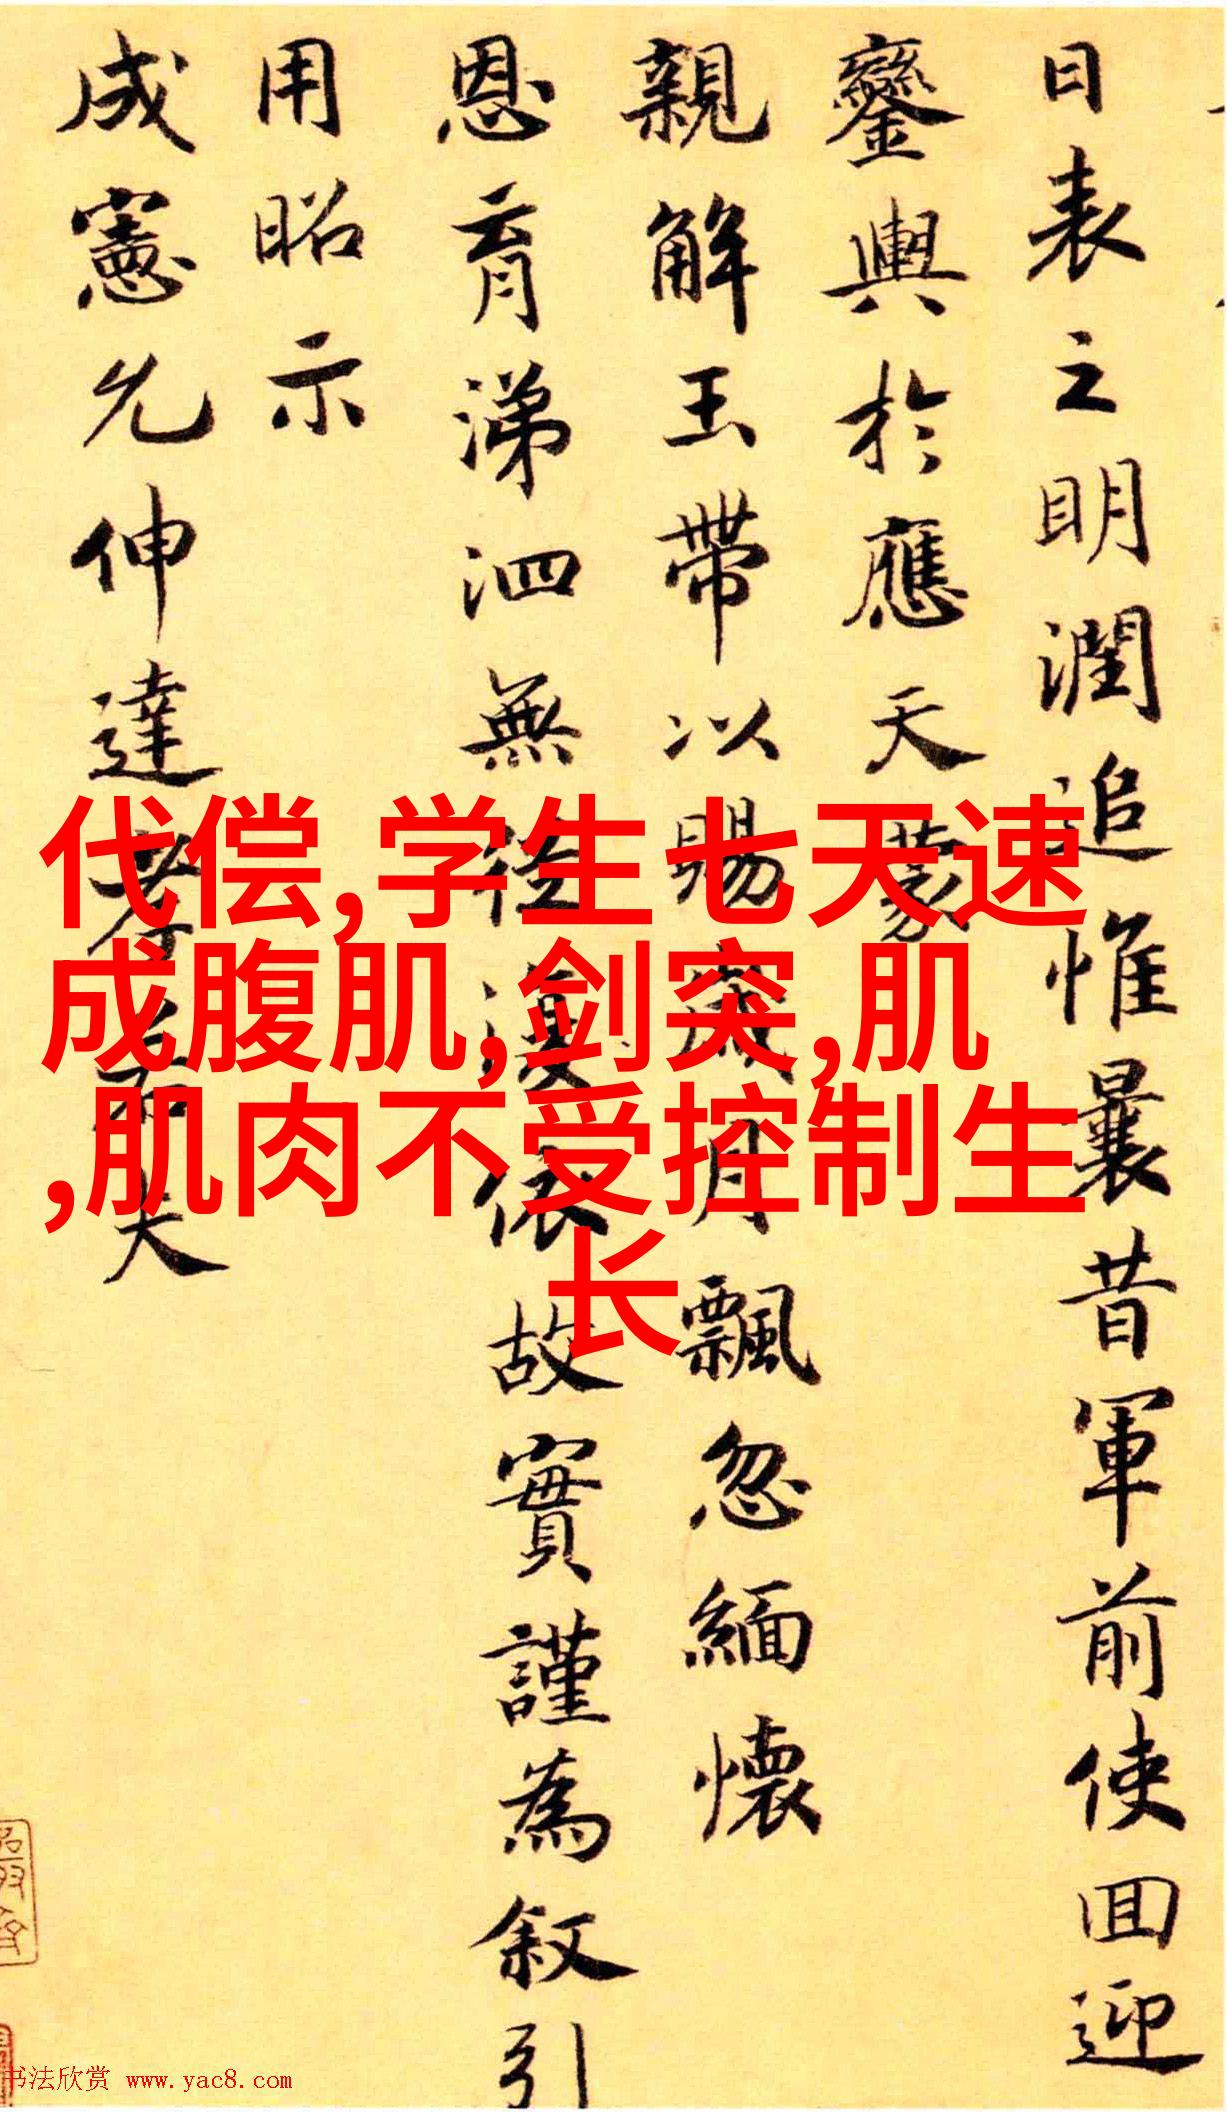 日表之明潤追惟曩昔軍前使回迎
鑾輿於應天蒙
親解玉帶以賜歲月飄忽緬懷
恩育涕泗無從渙依故實謹為叙引
用昭示
成憲允伸達孝若夫
代偿,学生七天速
成腹肌,剑突,肌
,肌肉不受控制生
长
书法欣赏 www.yac8.com